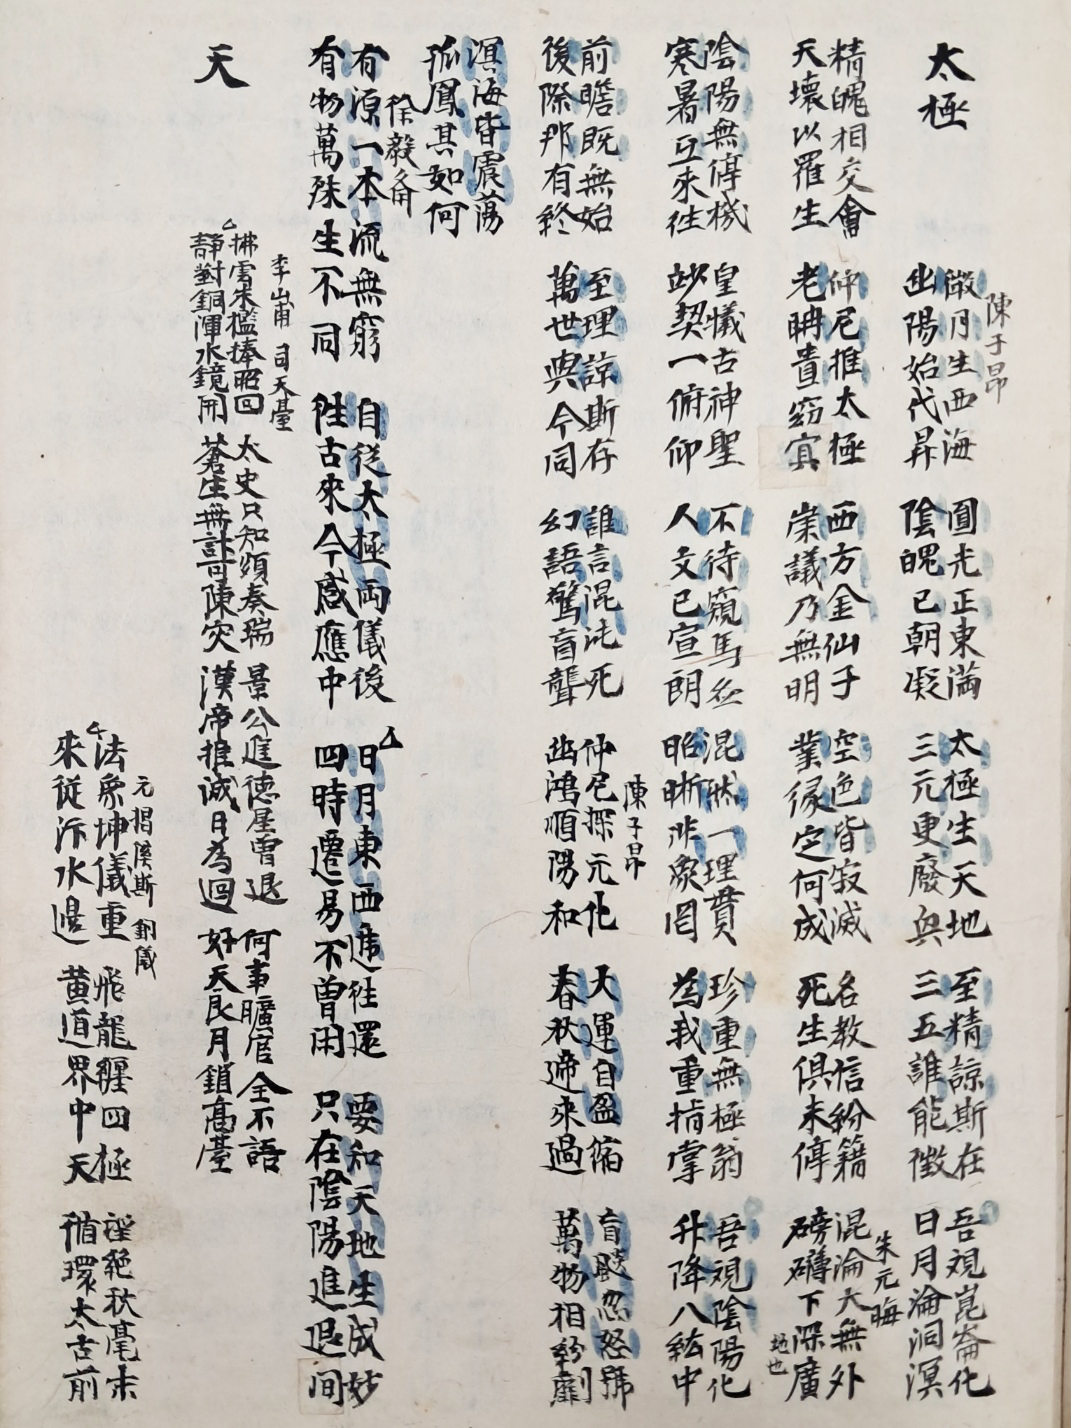 太極
陳子昂
微月生西海
幽陽始代昇
圓光正東滿
陰魄已朝凝
太極生天地
三元更廢興
至精諒斯在
三五誰能徵
吾視崑崙化
日月淪洞溟
精魄相交會
天壤以羅生
仲尼推太極
老聃貴窈冥
西方金仙子
崇議乃無明
空色皆寂滅
業緣定何成
名教信紛籍
死生俱未停
朱元晦
混淪大無外
磅礴下深廣
地也
陰陽無停機
寒暑互來往
皇犧古神聖
妙契一俯仰
不待窺馬圖
人文已宣朗
混然一理貫
昭晣非象罔
珍重無極翁
為我重指掌
吾視陰陽化
升降八紘中
前瞻既無始
後際那有終
至理諒斯存
萬世與今同
誰言混沌死
幻語驚盲聾
陳子昂
仲尼探元化
幽鴻順陽和
大運自盈縮
春秋遞來過
盲飈忽怒號
萬物相紛劘
溟海皆震蕩
孤鳳其如何
徐毅齋
有源一本流無窮
有物萬殊生不同
自從太極兩儀後
往古來今感應中
日月東西遞往還
四時遷易不曾閑
要知天地生成妙
只在陰陽進退間
天
李山甫 司天臺
拂雲朱檻捧昭回
靜對銅渾水鏡開
太史只知頻奏瑞
蒼生無計可陳災
景公進德星曾退
漢帝推誠日為迴
何事曠官全不語
好天良月鎖高臺
元揭傒斯 銅儀
法象坤儀重
來從汴水邊
飛龍纏四極
黃道界中天
望絕秋毫末
循環太古前